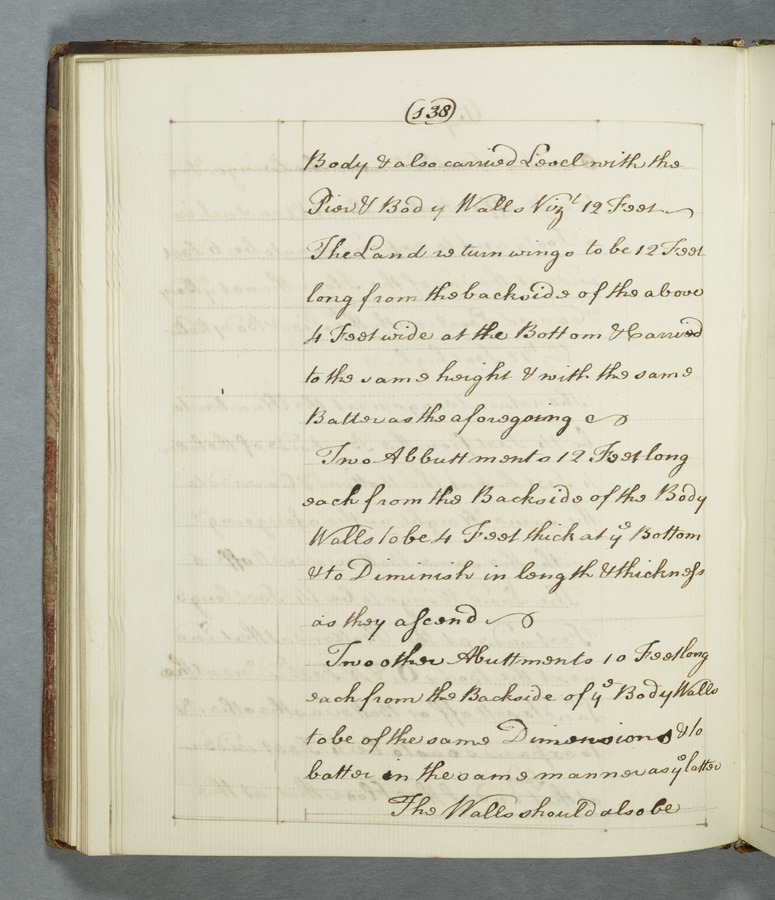 138
Body & also carried Level with the
Pier & Body Walls Vizt 12 Feet
The Land return wings to be 12 Feet
long from the backside of the above
4 Feet wide at the Bottom & Carried
to the same height & with the same
Batter as the aforegoing
Two Abbuttments 12 Feet long
each from the Backside of the Body
Walls to be 4 Feet thick at ye Bottom
& to Diminish in length & thickneſs
as they aſcend
Two other Abuttments 10 Feet long
each from the Backside of ye Body Walls
to be of the same Dimensions & to
batter in the same manner as ye latter
The Walls should also be